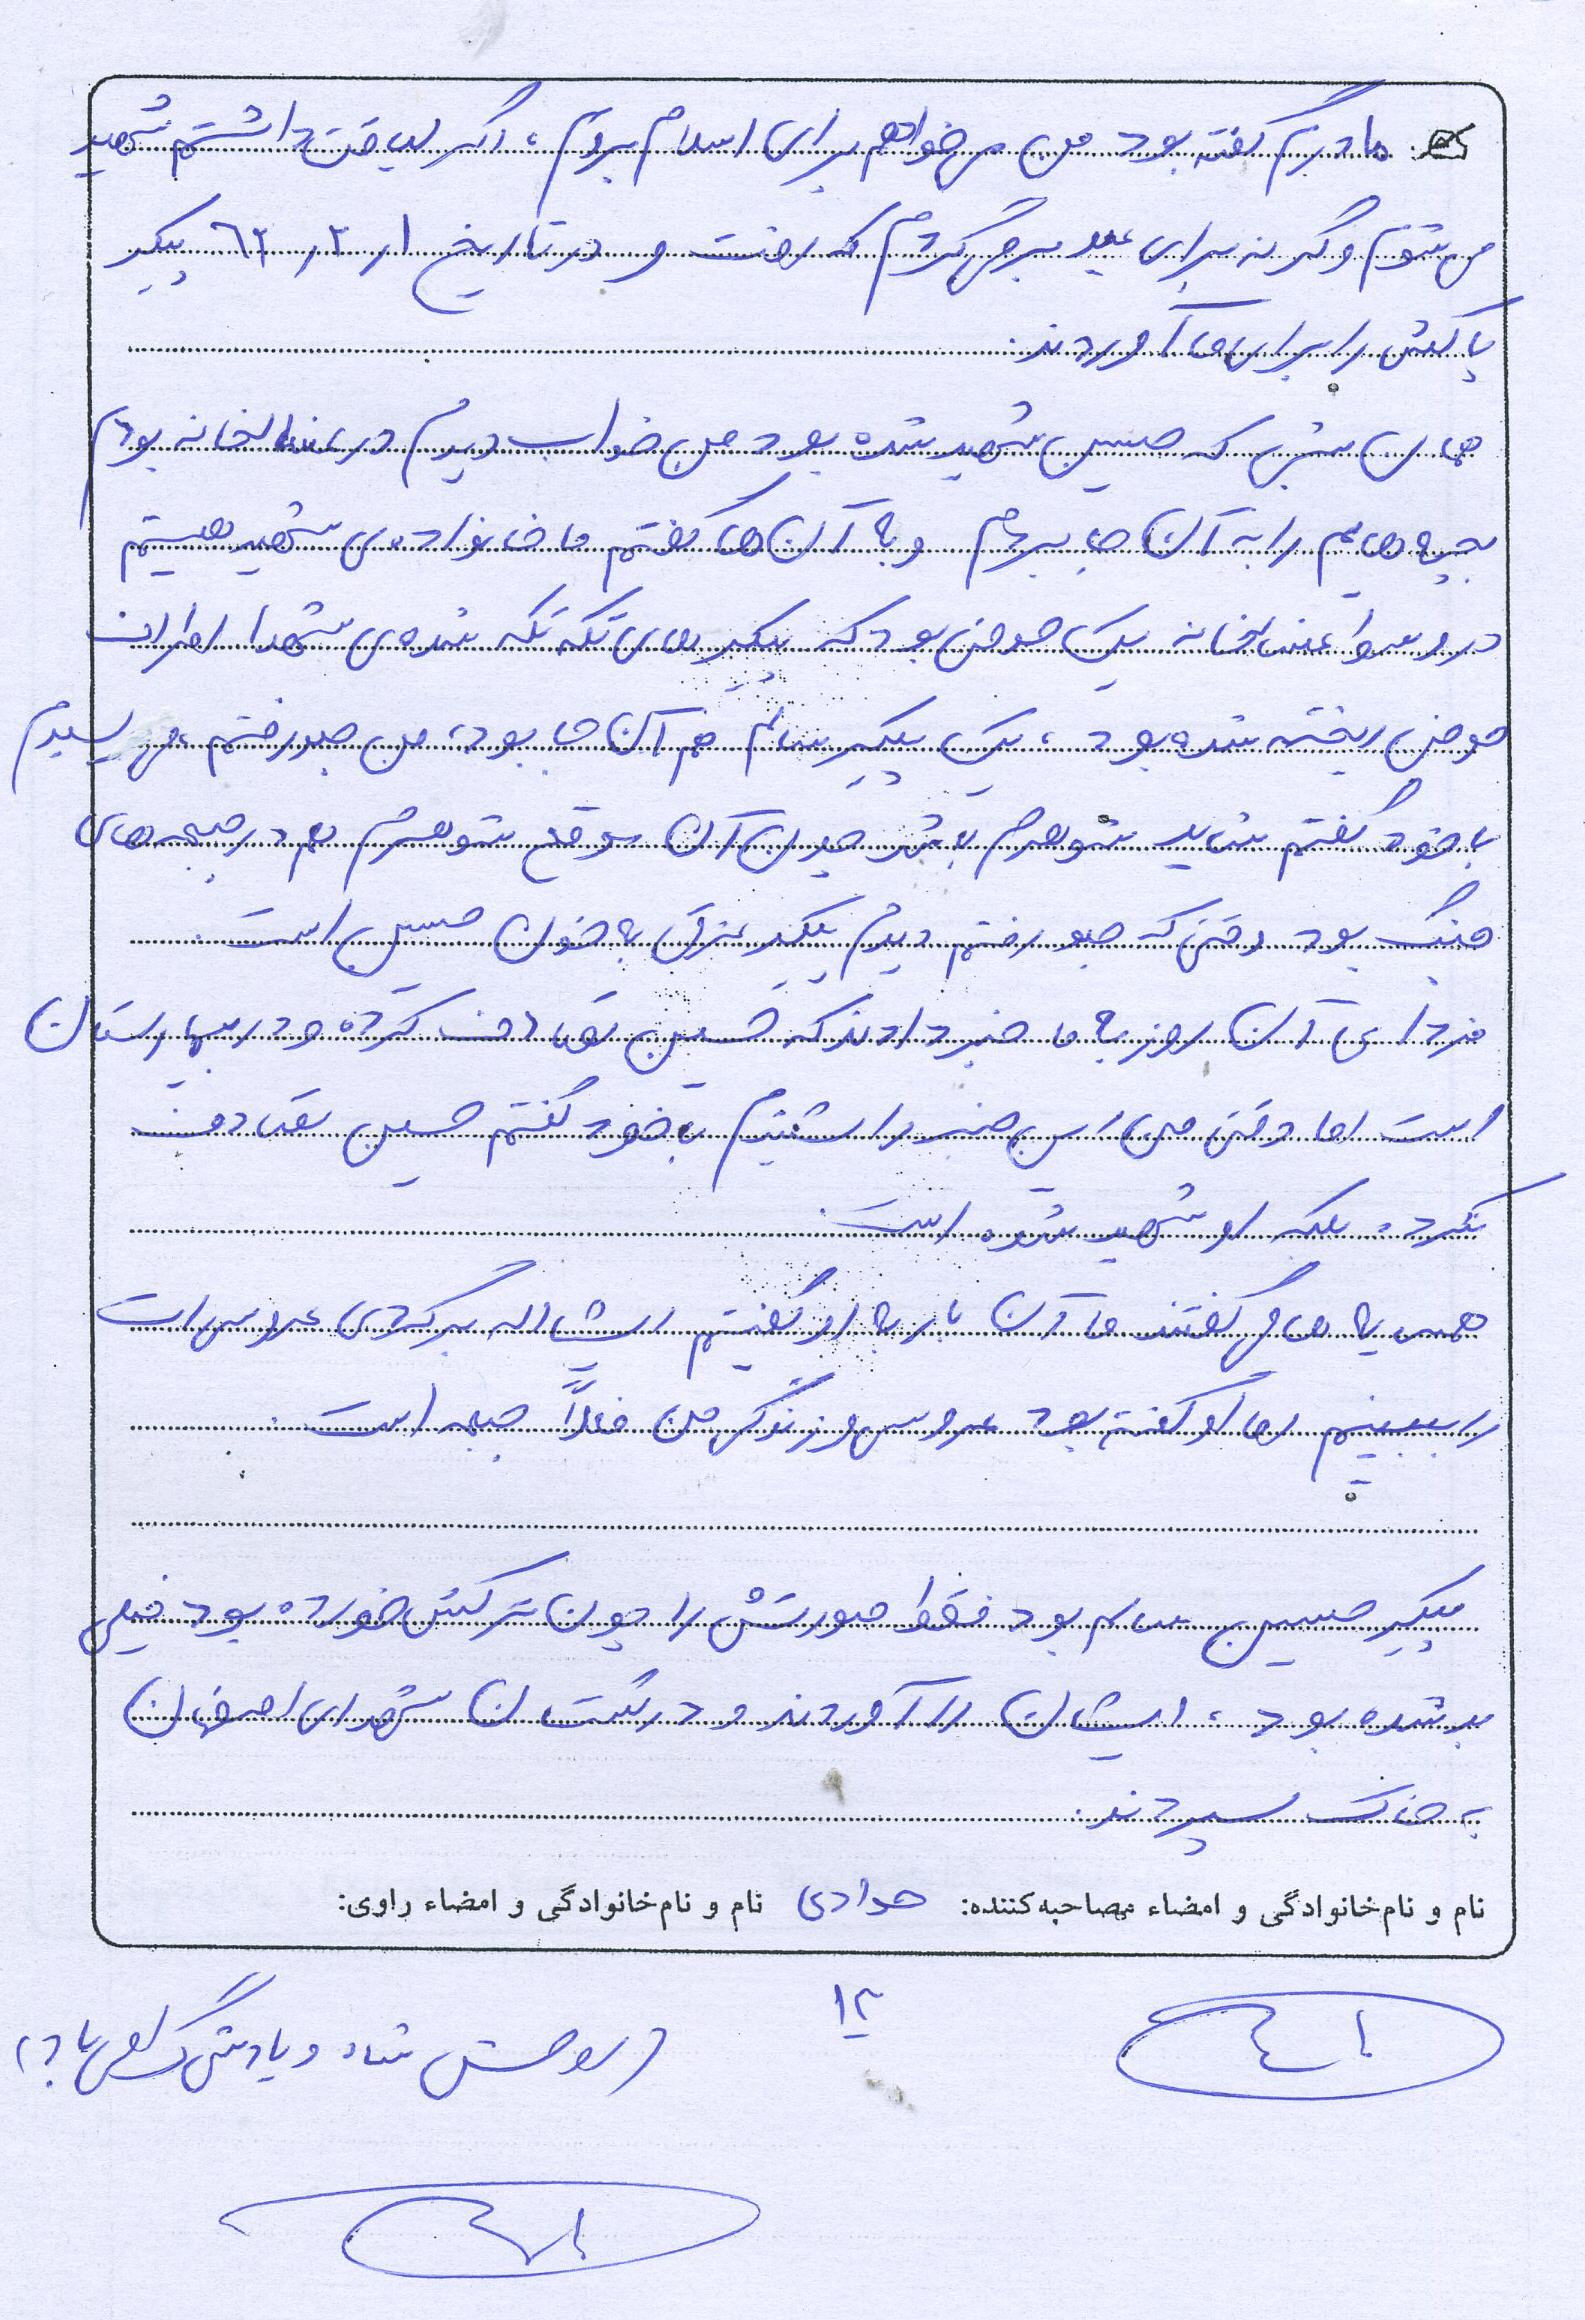 مادرم گفته بود من می‌خواهم برای اسلام بروم، اگر لیاقت داشتم شهید
می‌شوم وگرنه برای عید برمی‌گردم که رفت و در تاریخ ۶۲٫۲٫۱ پیکر
پاکش را برای ما آوردند.
همان شبی که حسین شهید شده بود من خواب دیدم در غسالخانه بودم
بچه‌هایم را به آن جا بردم و به آن‌ها گفتم ما خانواده‌ی شهید هستیم
در وسط غسالخانه یک حوض بود که پیکرهای تکه تکه شده‌ی شهدا اطراف
حوض ریخته شده بود، یک پیکر سالم هم آن جا بود، من جلو رفتم، می‌ترسیدم
با خود گفتم شاید شوهرم باشد چون آن موقع شوهرم هم در جبهه‌های
جنگ بود وقتی که جلو رفتم دیدم پیکر غرق به خون حسین است.
فردای آن روز به ما خبر دادند که حسین تصادف کرده و در بیمارستان
است اما وقتی من این خبر را شنیدم با خود گفتم حسین تصادف
نکرده بلکه او شهید شده است.
همسایه‌ها می‌گفتند ما آن بار به او گفتیم انشااله برگردی عروسی‌ات
را ببینیم اما او گفته بود عروسی و زندگی من فعلاً جبهه است.
پیکر حسین سالم بود فقط صورتش را چون ترکش خورده بود خیلی
بد شده بود، ایشان را آوردند و در گلستان شهدای اصفهان
به خاک سپردند.
نام و نام‌خانوادگی و امضاء مصاحبه‌کننده: هوادی نام و نام‌خانوادگی و امضاء راوی:
۱۲
(روحش شاد و یادش گرامی باد)